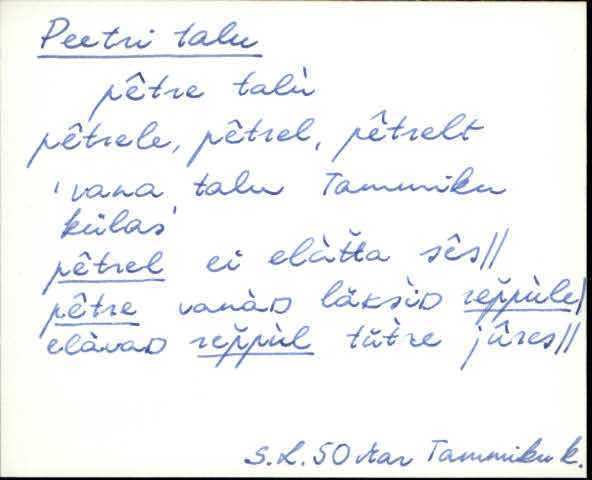 Peetri talu
pêtre talù
pêtrele, pêtrel, pêtrelt
'vana talu Tammiku
külas'
pêtrel ei elàtta sês//
pêtre vanàD läksìD rep̆pùle/
elàvaD rep̆pùl tütre jûres//
S.L. 50 Tammiku k.